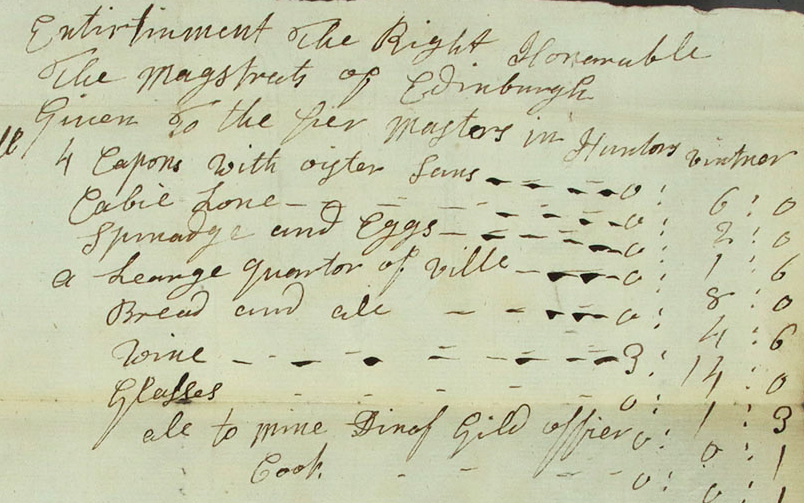 Entirtinment The Right Honorable
The Magstrats of Edinburgh
Given To the fier Masters in Huntors vintner
4 Capons with oister Saus 0 : 6 : 0
Cabie Lone 0 : 2 : 0
Spinadge and Eggs 0 : 1 : 6
a Learge quartor of ville 0 : 8 : 0
Bread and ale 0 : 4 : 6
Wine 3 : 14 : 0
Glasses 0 : 1 : 3
ale to mine Gild offier 0 : 0 : 1
Cook 0 :